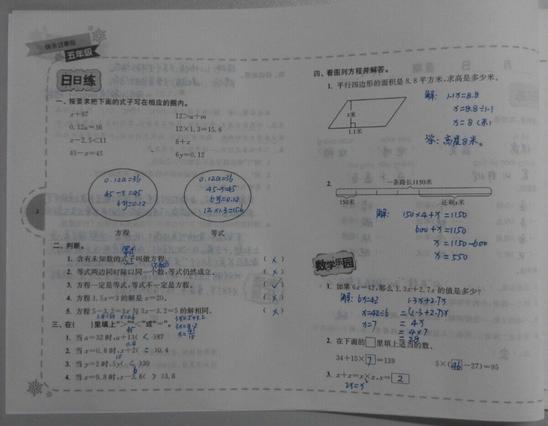 快乐过寒假
五年级
日日练
一、按要求把下面的式子写在相应的圈内。
x+67
12>a+m
0.12a=36
12×1.3=15.6
x-2.5<11
8+x
45-x=45
6y=0.12
0.12a=36
45-x=45
6y=0.12
0.12a=36
45-x=45
6y=0.12
12×1.3=15.6
方程
等式
二、判断。
1. 含有未知数的式子叫做方程。 (×)
2. 等式两边同时除以同一个数,等式仍然成立。 (×)
3. 方程一定是等式,等式不一定是方程。 (✓)
4. 方程1.5x=3的解是x=20。 (×)
5. 方程5-3.2=3x与3x-3.2=5的解相同。 (×)
三、在( )里填上">""<"或"="。
四、看图列方程并解答。
1. 平行四边形的面积是8.8平方米,求高是多少米。
解: 1.1x=8.8
x=8.8÷1.1
x=8(米)
x米
1.1米
答:高是8米。
2.
一条路长1150米
150米
还剩x米
解: 150×4+x=1150
600+x=1150
x=1150-600
x=550
数学乐园
1. 如果6x=42,那么1.3x+2.7x的值是多少?
解: 6x=42
1.3x+2.7x
x=42÷6
=(1.3+2.7)x
x=7
=4x
=4×7
=28
2. 在下面的□里填上适当的数。
34+15×7=139
5×(46-27)=95
3. x+x=x×x,x=2